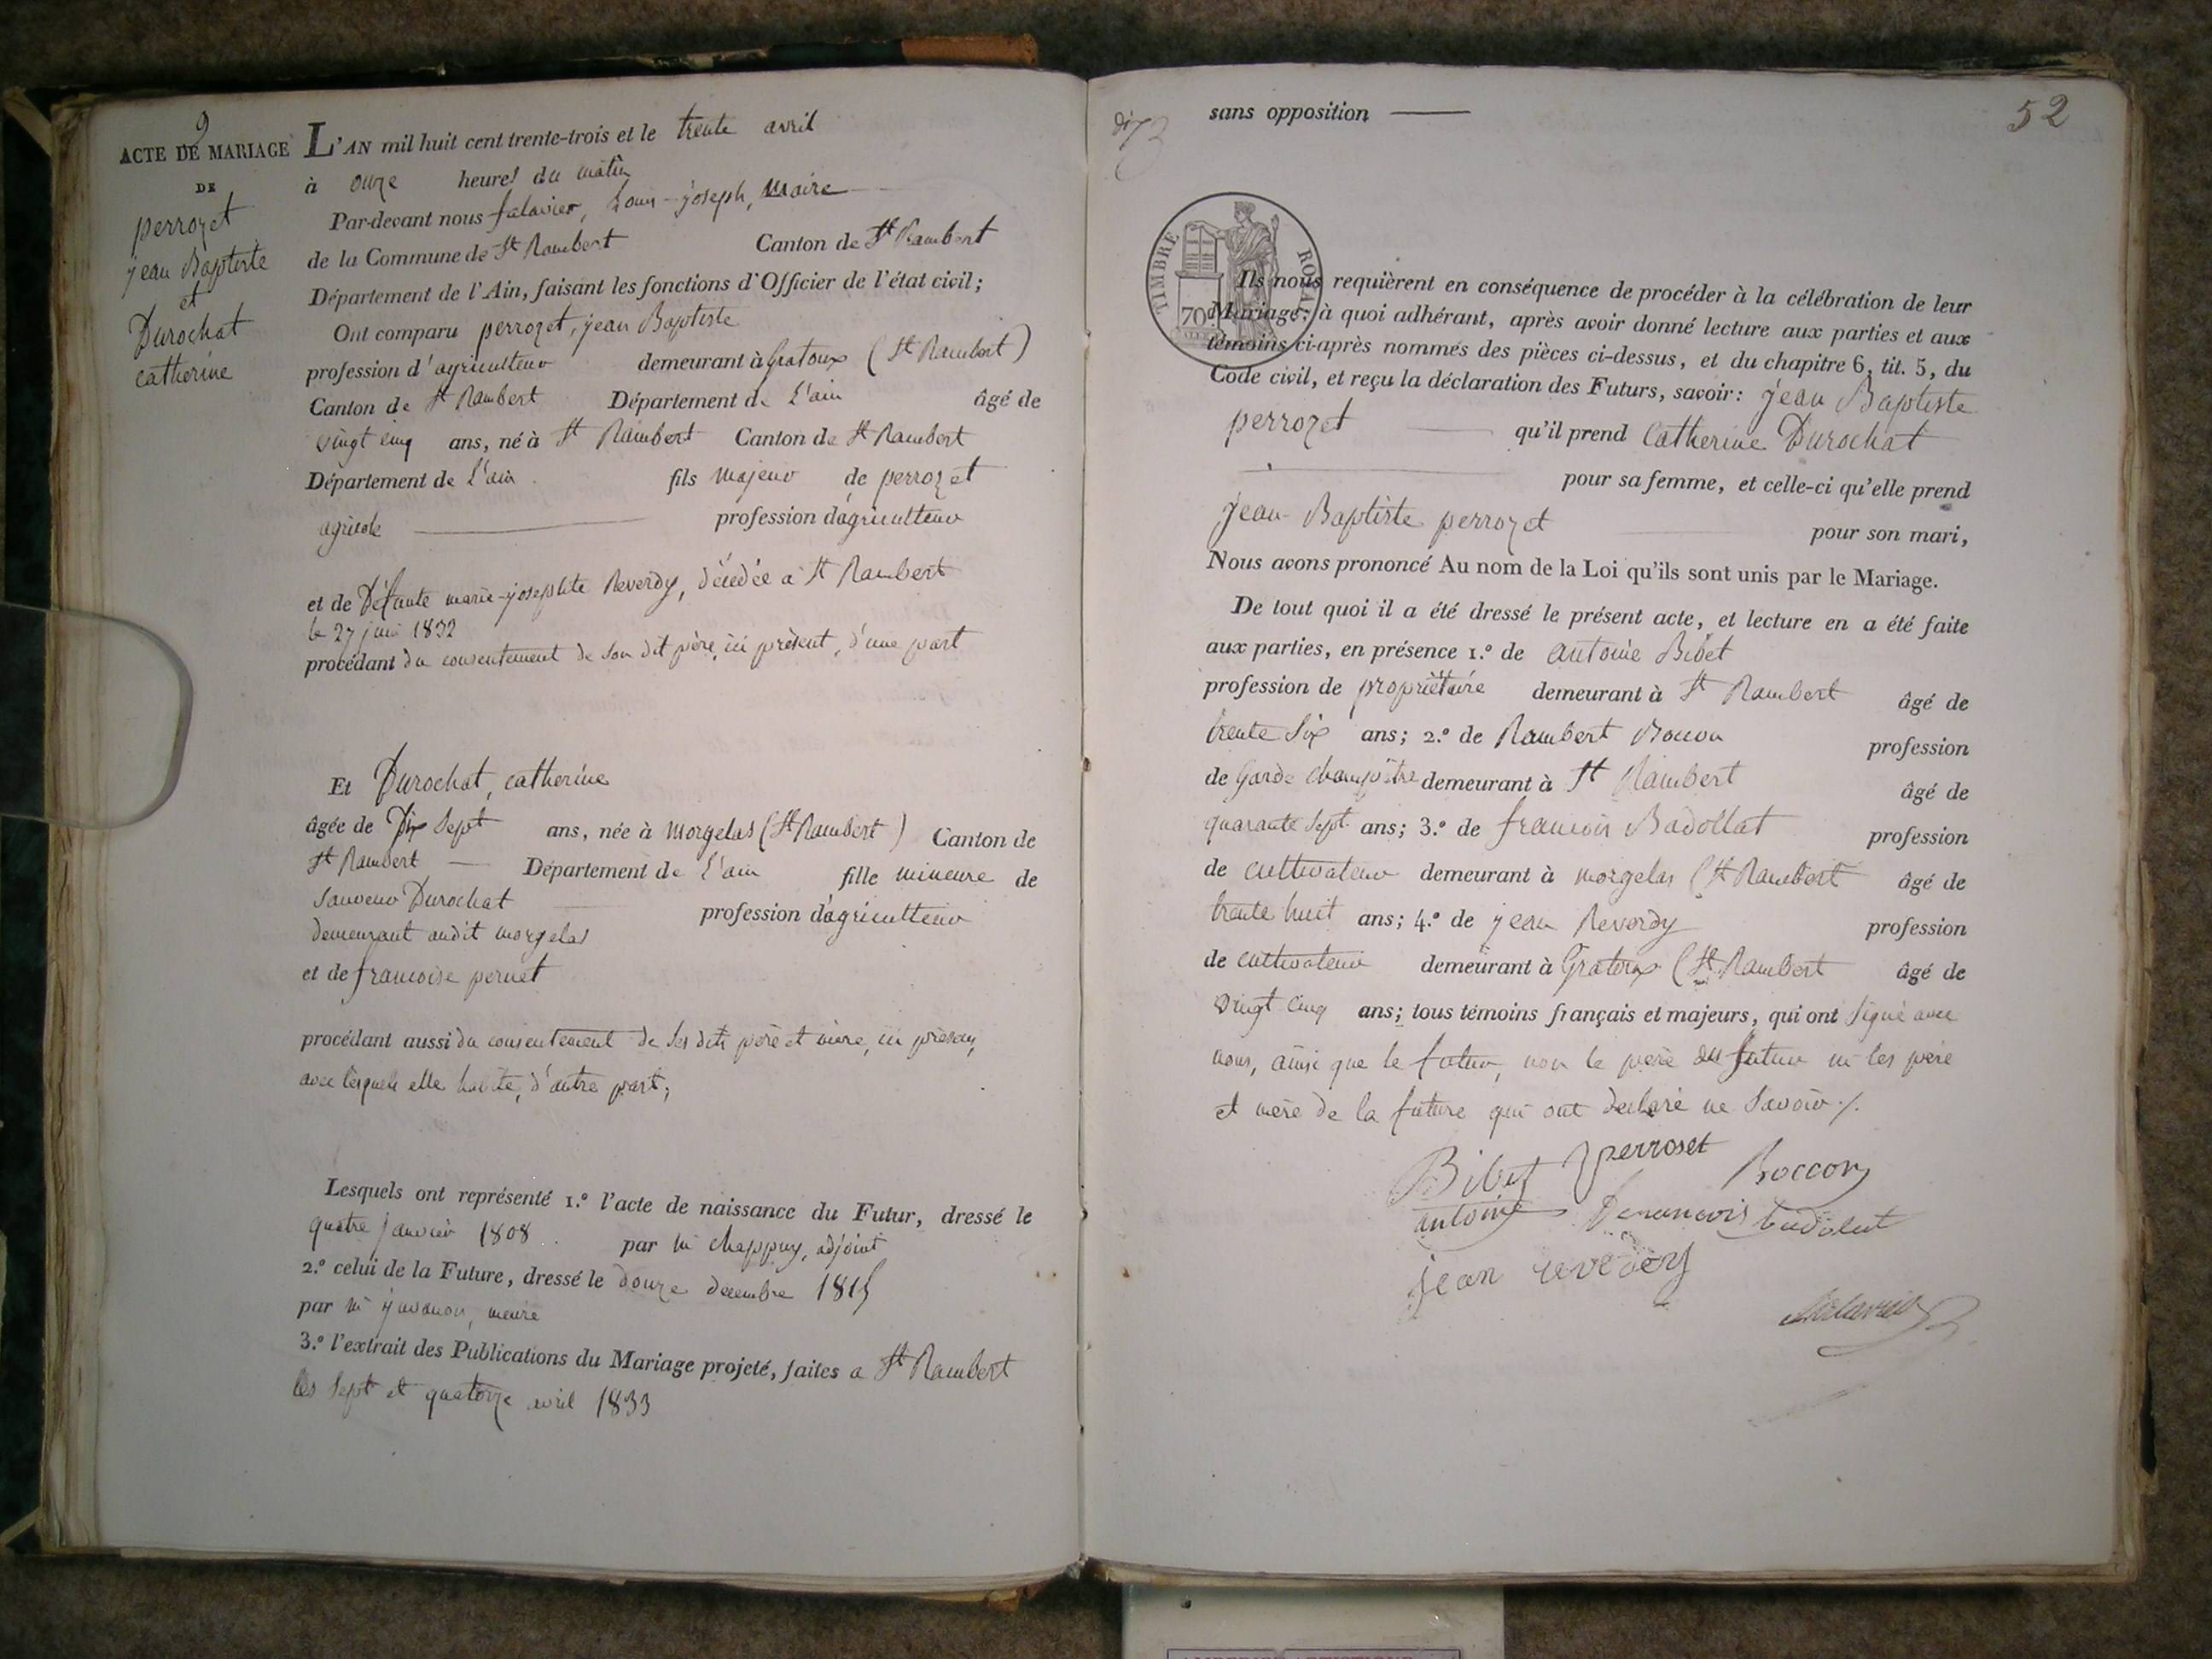 9
ACTE DE MARIAGE
DE
perrozet
jean Baptiste
et
Durochat
catherine
L'AN mil huit cent trente-trois et le trente avril
à onze heures du matin
Par-devant nous falavier, Louis-joseph, Maire
de la Commune de St Rambert Canton de St Rambert
Département de l'Ain, faisant les fonctions d'Officier de l'état civil;
Ont comparu perrozet, jean Baptiste
profession d'agriculteur demeurant à Gratoux (St Rambert)
Canton de St Rambert Département de L'ain âgé de
vingt cinq ans, né à St Rambert Canton de St Rambert
Département de L'ain fils majeur de perrozet
agricole profession d'agriculteur
et de Défunte marie-josephte Reverdy, décédée à St Rambert
le 27 juin 1832
procédant du consentement de son dit père, ici présent, d'une part
Et Durochat, catherine
âgée de Dix Sept ans, née à Morgelas (St Rambert) Canton de
St Rambert Département de L'ain fille mineure de
Sauveur Durochat profession d'agriculteur
demeurant audit morgelas
et de francoise pernet
procédant aussi du consentement de ses dits père et mère, ici présens,
avec lesquels elle habite, d'autre part;
Lesquels ont représenté 1.º l'acte de naissance du Futur, dressé le
quatre janvier 1808 par M chappuy, adjoint
2.º celui de la Future, dressé le douze decembre 1815
par M juvanon, maire
3.º l'extrait des Publications du Mariage projeté, faites a St Rambert
les Sept et quatorze avril 1833
52
sans opposition
TIMBRE ROYAL
70
Ils nous requièrent en conséquence de procéder à la célébration de leur
Mariage; à quoi adhérant, après avoir donné lecture aux parties et aux
témoins ci-après nommés des pièces ci-dessus, et du chapitre 6, tit. 5, du
Code civil, et reçu la déclaration des Futurs, savoir: jean Baptiste
perrozet qu'il prend Catherine Durochat
pour sa femme, et celle-ci qu'elle prend
jean-Baptiste perrozet pour son mari,
Nous avons prononcé Au nom de la Loi qu'ils sont unis par le Mariage.
De tout quoi il a été dressé le présent acte, et lecture en a été faite
aux parties, en présence 1.º de antoine Bibet
profession de propriétaire demeurant à St Rambert âgé de
trente Six ans; 2.º de Rambert Rocon profession
de Garde champêtre demeurant à St Rambert âgé de
quarante Sept ans; 3.º de francois Badollat profession
de cultivateur demeurant à morgelas (St Rambert âgé de
trente huit ans; 4.º de jean Reverdy profession
de cultivateur demeurant à Gratoux (St Rambert âgé de
vingt cinq ans; tous témoins français et majeurs, qui ont Signé avec
nous, ainsi que le futur, non le père du futur ni les père
et mère de la future qui ont déclaré ne Savoir ./.
Bibet perroset Roccon
antoine
jean reverdy